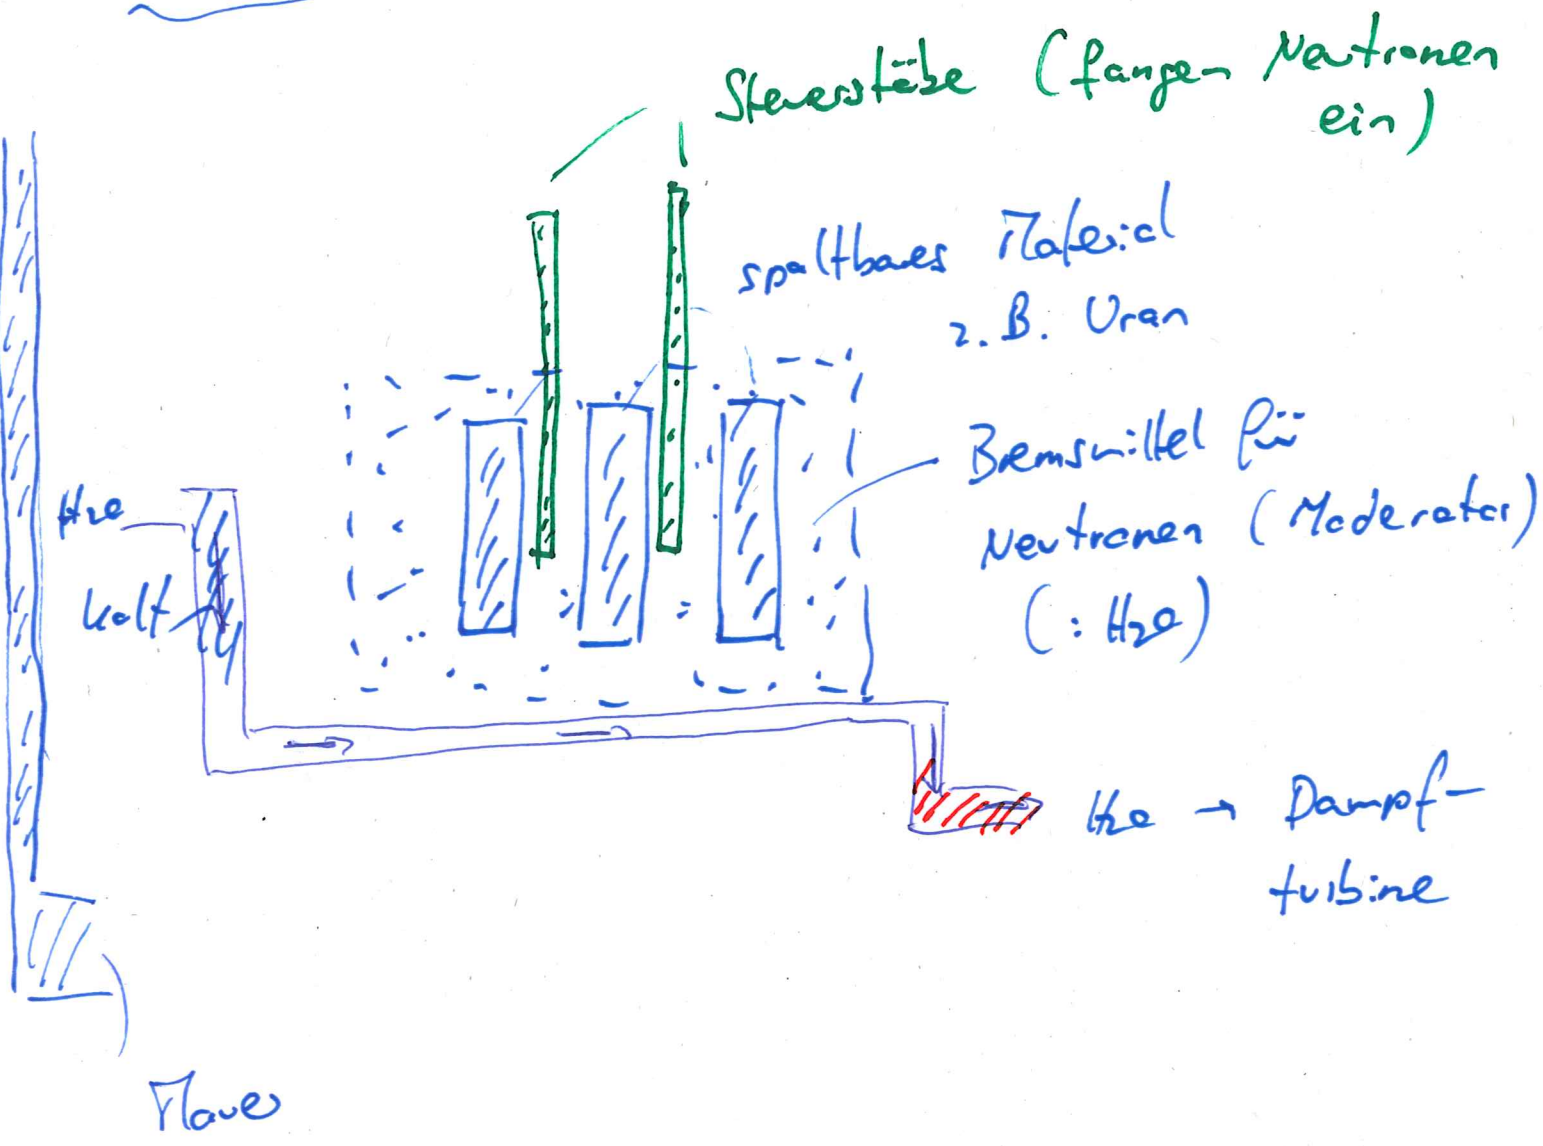 Steuerstäbe (fangen Neutronen
ein)
spaltbares Material
z. B. Uran
Bremsmittel für
Neutronen (Moderator)
(: H2O)
H2O
kalt
H2O → Dampf-
turbine
Mauer